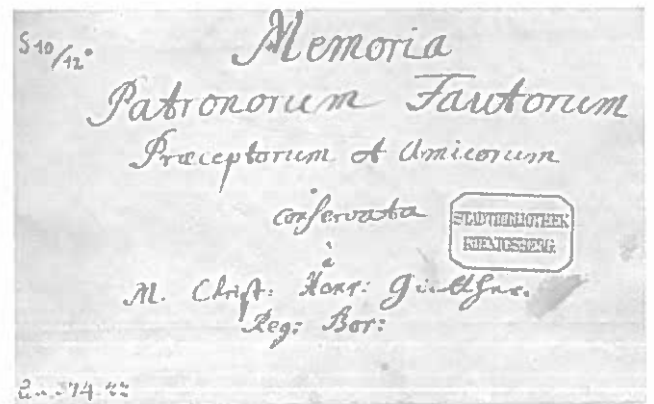 S 10/12°
Memoria
Patronorum Fautorum
Præceptorum et Amicorum
conservata
à
M. Christ: Henr: Günther.
Reg: Bor:
STADTBIBLIOTHEK
KOENIGSBERG
74.22